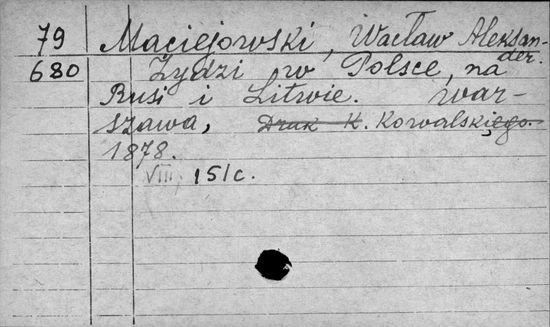 79 Maciejowski, Wacław Aleksan-
der.
680 Żydzi w Polsce, na
Rusi i Litwie. War-
szawa, Druk K. Kowalskiego.
1878.
VIII, 151 c.